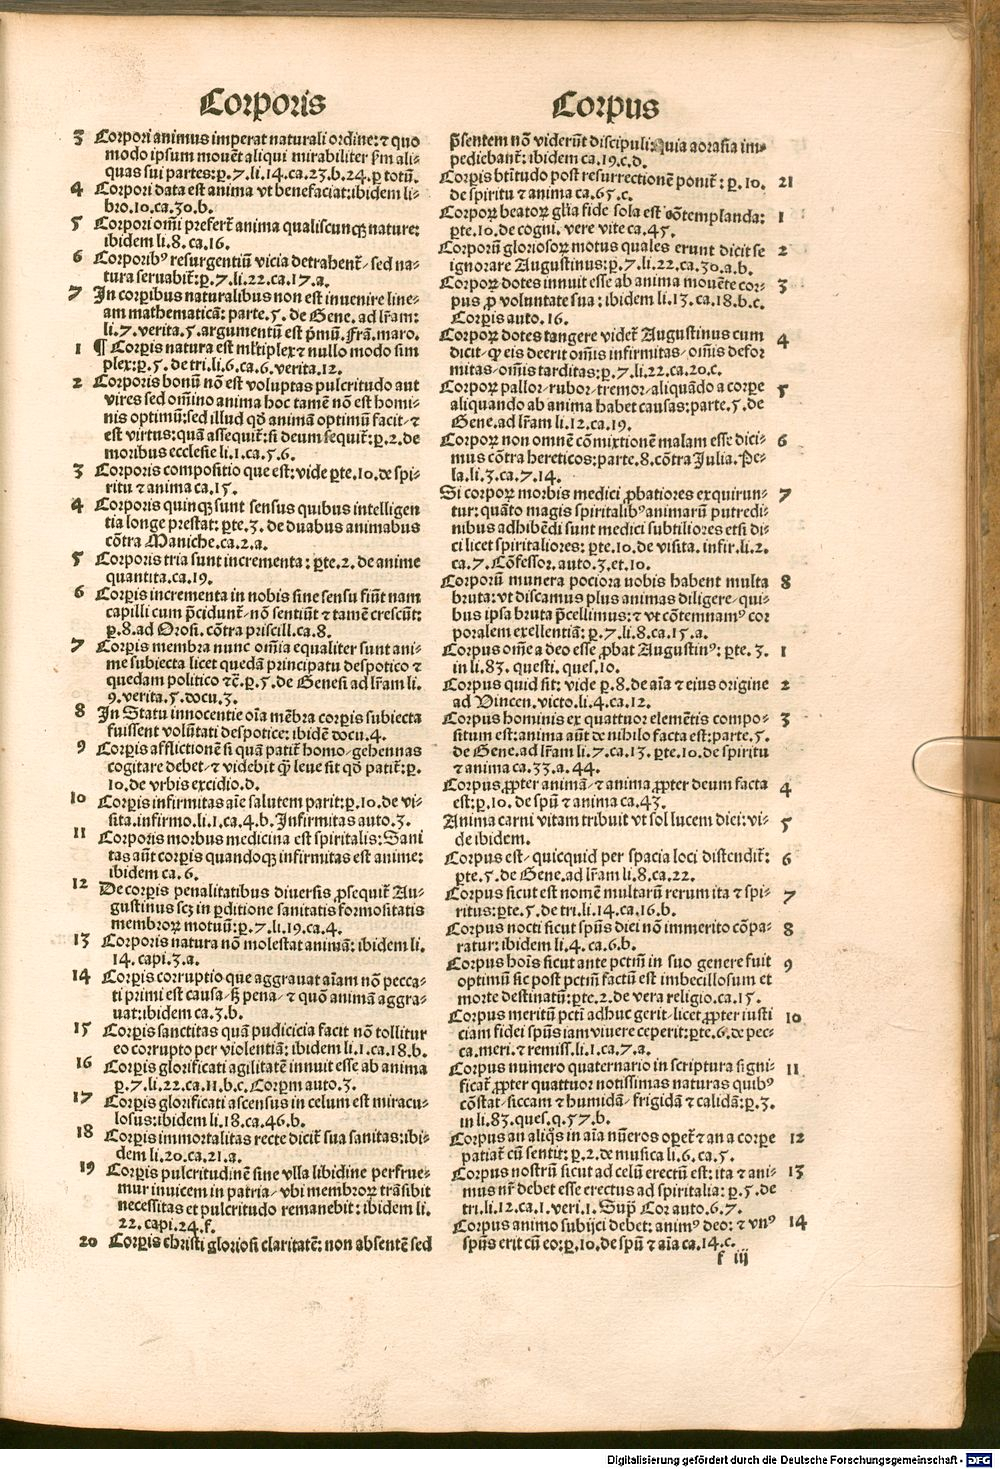 Corporis
3 Corpori animus imperat naturali ordine: ⁊ quo
modo ipsum mouēt aliqui mirabiliter ẜm ali⸗
quas sui partes: p̲. 7. li. 14. ca. 23. b. 24. p̲ totū.
4 Corpori data est anima vt benefaciat: ibidem li⸗
bro. 10. ca. 30. b.
5 Corpori om̄i prefert᷑ anima qualiscunqꝫ nature:
ibidem li. 8. ca. 16.
6 Corporibꝰ resurgentiū vicia detrahent᷑⸝ sed na⸗
tura seruabit᷑: p̲. 7. li. 22. ca. 17. a.
7 In corp̲ibus naturalibus non est inuenire line⸗
am mathematicā: parte. 5. de Gene. ad lr̄am:
li. 7. verita. 5. argumentū est p̄mū. Frā. maro.
1 ¶ Corp̲is natura est ml̄tiplex ⁊ nullo modo sim
plex: p̲. 5. de tri. li. 6. ca. 6. verita. 12.
2 Corporis bonū nō est voluptas pulcritudo aut
vires sed om̄ino anima hoc tamē nō est homi⸗
nis optimū: sed illud qd̄ animā optimū facit⸝ ⁊
est virtus: quā assequit᷑: si deum sequit᷑: p̲. 2. de
moribus ecclesie li. 1. ca. 5. 6.
3 Corporis compositio que est: vide p̲te. 10. de spi⸗
ritu ⁊ anima ca. 15.
4 Corporis quinqꝫ sunt sensus quibus intelligen
tia longe prestat: p̲te. 3. de duabus animabus
cōtra Maniche. ca. 2. a.
5 Corporis tria sunt incrementa: p̲te. 2. de anime
quantita. ca. 19.
6 Corp̲is incrementa in nobis sine sensu fiūt nam
capilli cum p̄cidunt᷑⸝ nō sentiūt ⁊ tamē crescūt:
p̲. 8. ad Orosi. cōtra priscill. ca. 8.
7 Corp̲is membra nunc om̄ia equaliter sunt ani⸗
me subiecta licet quedā principatu despotico ⁊
quedam politico ⁊c̄. p̲. 5. de Genesi ad lr̄am li.
9. verita. 5. docu. 3.
8 In Statu innocentie oīa mēbra corp̲is subiecta
fuissent volūtati despotice: ibidē docu. 4.
9 Corp̲is afflictionē si quā patit᷑ homo⸝ gehennas
cogitare debet⸝ ⁊ videbit q̄ leue sit qd̄ patit᷑: p̲.
10. de vrbis excidio. d.
10 Corp̲is infirmitas aīe salutem parit: p̲. 10. de vi⸗
sita. infirmo. li. 1. ca. 4. b. Infirmitas auto. 3.
11 Corporis morbus medicina est spiritalis: Sani
tas aūt corp̲is quandoqꝫ infirmitas est anime:
ibidem ca. 6.
12 De corp̲is penalitatibus diuersis ꝓsequit᷑ Au⸗
gustinus scꝫ in p̲ditione sanitatis formositatis
membroꝝ motuū: p̲. 7. li. 19. ca. 4.
13 Corporis natura nō molestat animā: ibidem li.
14. capi. 3. a.
14 Corp̲is corruptio que aggrauat aīam nō pecca⸗
ti primi est causa⸝ sꝫ pena⸝ ⁊ quō animā aggra⸗
uat: ibidem ca. 3. b.
15 Corp̲is sanctitas quā pudicicia facit nō tollitur
eo corrupto per violentiā: ibidem li. 1. ca. 18. b.
16 Corp̲is glorificati agilitatē innuit esse ab anima
p̲. 7. li. 22. ca. 11. b. c. Corp̲m auto. 3.
17 Corp̲is glorificati ascensus in celum est miracu⸗
losus: ibidem li. 18. ca. 46. b.
18 Corp̲is immortalitas recte dicit᷑ sua sanitas: ibi⸗
dem li. 20. ca. 21. a.
19 Corp̲is pulcritudinē sine vlla libidine perfrue⸗
mur inuicem in patria⸝ vbi membroꝝ trāsibit
necessitas et pulcritudo remanebit: ibidem li.
22. capi. 24. f.
20 Corp̲is christi gloriosi claritatē: non absentē sed
Corpus
p̄sentem nō viderūt discipuli: Quia aorasia im⸗
pediebant᷑: ibidem ca. 19. c. d.
Corp̲is bt̄itudo post resurrectionē ponit᷑: p̲. 10. 21
de spiritu ⁊ anima ca. 65. c.
Corpoꝝ beatoꝝ gl̄ia fide sola est cōtemplanda: 1
p̲te. 10. de cogni. vere vite ca. 45.
Corporū gloriosoꝝ motus quales erunt dicit se 2
ignorare Augustinus: p̲. 7. li. 22. ca. 30. a. b.
Corpoꝝ dotes innuit esse ab anima mouēte cor⸗ 3
pus ꝓ voluntate sua: ibidem li. 13. ca. 18. b. c.
Corp̲is auto. 16.
Corpoꝝ dotes tangere videt᷑ Augustinus cum 4
dicit⸝ ꝙ eis deerit om̄is infirmitas⸝ om̄is defor
mitas⸝ om̄is tarditas: p̲. 7. li. 22. ca. 20. c.
Corpoꝝ pallor⸝ rubor⸝ tremor⸝ aliquādo a corp̲e 5
aliquando ab anima habet causas: parte. 5. de
Gene. ad lr̄am li. 12. ca. 19.
Corpoꝝ non omnē cōmixtionē malam esse dici⸗ 6
mus cōtra hereticos: parte. 8. cōtra Julia. Pe⸗
la. li. 3. ca. 7. 14.
Si corpoꝝ morbis medici ꝓbatiores exquirun⸗ 7
tur: quāto magis spiritalibꝰ animarū putredi⸗
nibus adhibēdi sunt medici subtiliores etsi di⸗
ci licet spiritaliores: p̲te. 10. de visita. infir. li. 2.
ca. 7. Cōfessor. auto. 3. et. 10.
Corporū munera pociora nobis habent multa 8
bruta: vt discamus plus animas diligere⸝ qui⸗
bus ipsa bruta p̄cellimus: ⁊ vt cōtemnamꝰ cor
poralem exellentiā: p̲. 7. li. 8. ca. 15. a.
Corpus om̄e a deo esse ꝓbat Augustinꝰ: p̲te. 3. 1
in li. 83. questi. ques. 10.
Corpus quid sit: vide p̲. 8. de aīa ⁊ eius origine 2
ad Vincen. victo. li. 4. ca. 12.
Corpus hominis ex quattuor elemētis compo⸗ 3
situm est: anima aūt de nihilo facta est: parte. 5.
de Gene. ad lr̄am li. 7. ca. 13. p̲te. 10. de spiritu
⁊ anima ca. 33. a. 44.
Corpus ꝓpter animā⸝ ⁊ anima ꝓpter deum facta 4
est: p̲. 10. de spū ⁊ anima ca. 43.
Anima carni vitam tribuit vt sol lucem diei: vi⸗ 5
de ibidem.
Corpus est⸝ quicquid per spacia loci distendit᷑: 6
p̲te. 5. de Gene. ad lr̄am li. 8. ca. 22.
Corpus sicut est nomē multarū rerum ita ⁊ spi⸗ 7
ritus: p̲te. 5. de tri. li. 14. ca. 16. b.
Corpus nocti sicut spūs diei nō immerito cōpa⸗ 8
ratur: ibidem li. 4. ca. 6. b.
Corpus hoīs sicut ante pctm̄ in suo genere fuit 9
optimū sic post pctm̄ factū est imbecillosum et
morte destinatū: p̲te. 2. de vera religio. ca. 15.
Corpus meritū pcti adhuc gerit⸝ licet ꝓpter iusti 10
ciam fidei spūs iam viuere ceperit: p̲te. 6. de pec⸗
ca. meri. ⁊ remiss. li. 1. ca. 7. a.
Corpus numero quaternario in scriptura signi⸗ 11
ficat᷑ ꝓpter quattuor notissimas naturas quibꝰ
cōstat⸝ siccam ⁊ humidā⸝ frigidā ⁊ calidā: p̲. 3.
in li. 83. ques. q. 57. b.
Corpus an aliqͥs in aīa nūeros op̲et᷑ ⁊ an a corp̲e 12
patiat᷑ cū sentit: p̲. 2. de musica li. 6. ca. 5.
Corpus nostrū sicut ad celū erectū est: ita ⁊ ani⸗ 13
mus nr̄ debet esse erectus ad spiritalia: p̲. 5. de
tri. li. 12. ca. 1. veri. 1. Sup̄ Cor auto. 6. 7.
Corpus animo subijci debet: animꝰ deo: ⁊ vnꝰ 14
spūs erit cū eo: p̲. 10. de spū ⁊ aīa ca. 14. c.
f iij
Digitalisierung gefördert durch die Deutsche Forschungsgemeinschaft - DFG